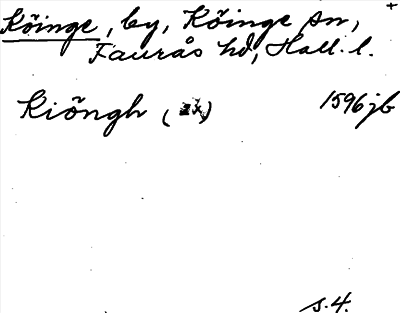 +
Köinge, by, Köinge sn,
Faurås hd, Hall. l.
Kiöngh ( ) 1596 jb
s. 4.